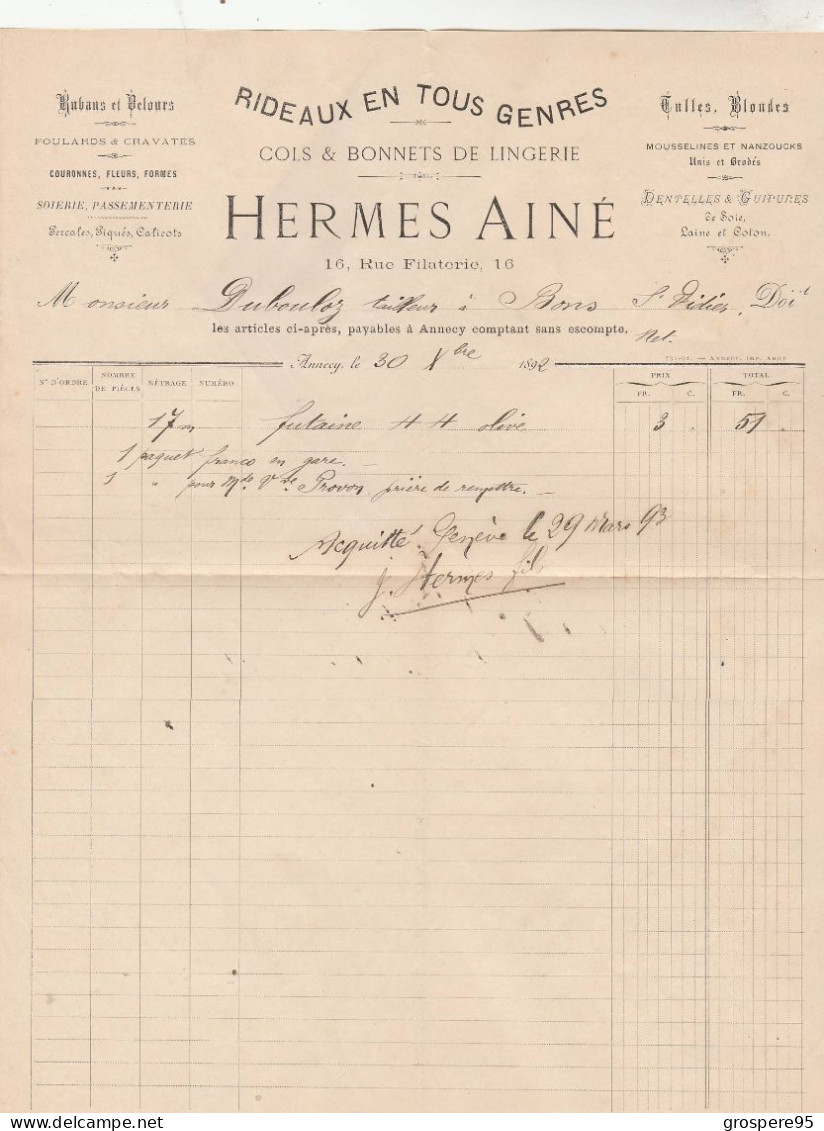 Rubans et Velours
FOULARDS & CRAVATES
COURONNES, FLEURS, FORMES
SOIERIE, PASSEMENTERIE
Percales, Piqués, Calicots
RIDEAUX EN TOUS GENRES
COLS & BONNETS DE LINGERIE
HERMES AINÉ
16, Rue Filaterie, 16
Tulles, Blondes
MOUSSELINES ET NANZOUCKS
Unis et Brodés
DENTELLES & GUIPURES
de Soie,
Laine et Coton.
Monsieur Dubouloz tailleur à Bons St Didier, Doit
les articles ci-après, payables à Annecy comptant sans escompte. Net.
ANNECY, IMP. ABRY
Annecy, le 30 Xbre 1892
N° D'ORDRE NOMBRE DE PIÈCES MÉTRAGE NUMÉRO PRIX FR. C. TOTAL FR. C.
17m futaine 44 olive 3 . 51 .
1 paquet franco en gare.
1 " pour Mde Vve Provon prière de remettre.
Acquitté Genève le 29 Mars 93
J. Hermes fils
grospere95